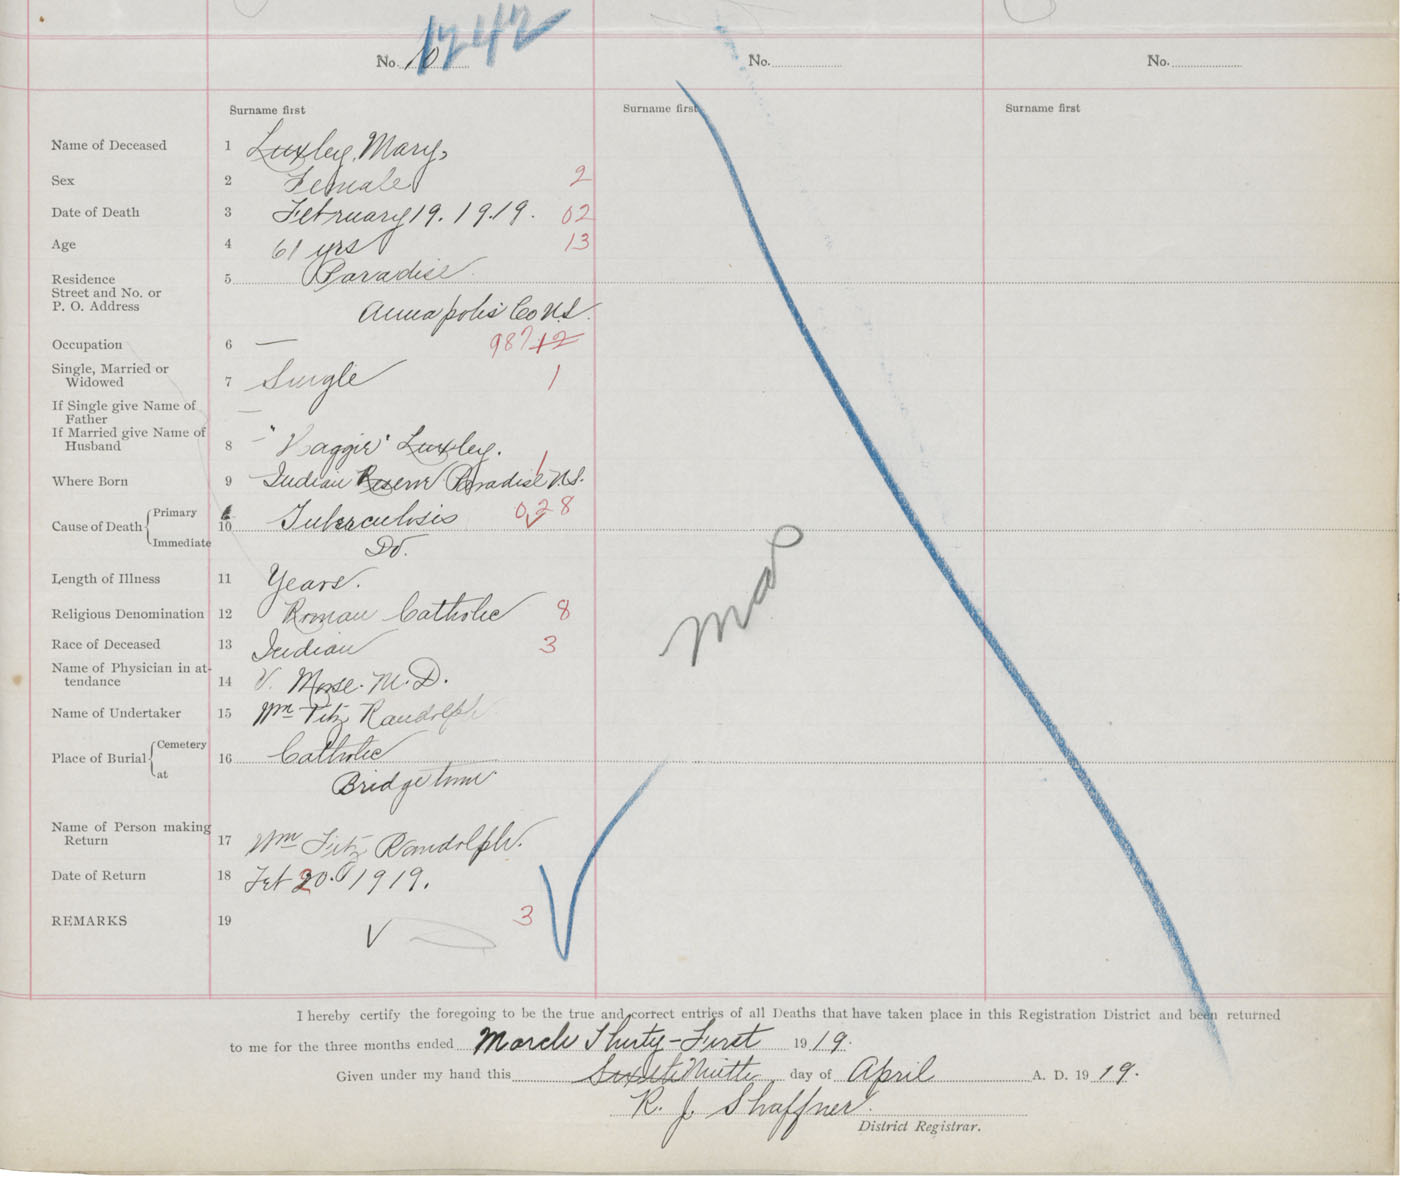 1242
No. 10 No. No.
Surname first Surname first Surname first
Name of Deceased 1 Luxley, Mary,
Sex 2 Female 2
Date of Death 3 February 19. 1919. 02
Age 4 61 yrs 13
Residence 5 Paradise
Street and No. or
P. O. Address Annapolis Co N.S.
Occupation 6 — 987 12
Single, Married or
Widowed 7 Single 1
If Single give Name of
Father —
If Married give Name of
Husband 8 — "Maggie" Luxley.
Where Born 9 Indian Reserve Paradise N.S. 1
Cause of Death Primary 10 Tuberculosis 028
Immediate Do.
Length of Illness 11 Years.
Religious Denomination 12 Roman Catholic 8
Race of Deceased 13 Indian 3
Name of Physician in at-
tendance 14 V. Morse. M. D.
Name of Undertaker 15 Wm Fitz Randolph
Place of Burial Cemetery 16 Catholic
at Bridgetown
Name of Person making
Return 17 Wm Fitz Randolph.
Date of Return 18 Feb 20. 1919.
REMARKS 19 3
I hereby certify the foregoing to be the true and correct entries of all Deaths that have taken place in this Registration District and been returned
to me for the three months ended March Thirty-First 1919.
Given under my hand this Ninth day of April A. D. 1919.
R. J. Shaffner.
District Registrar.